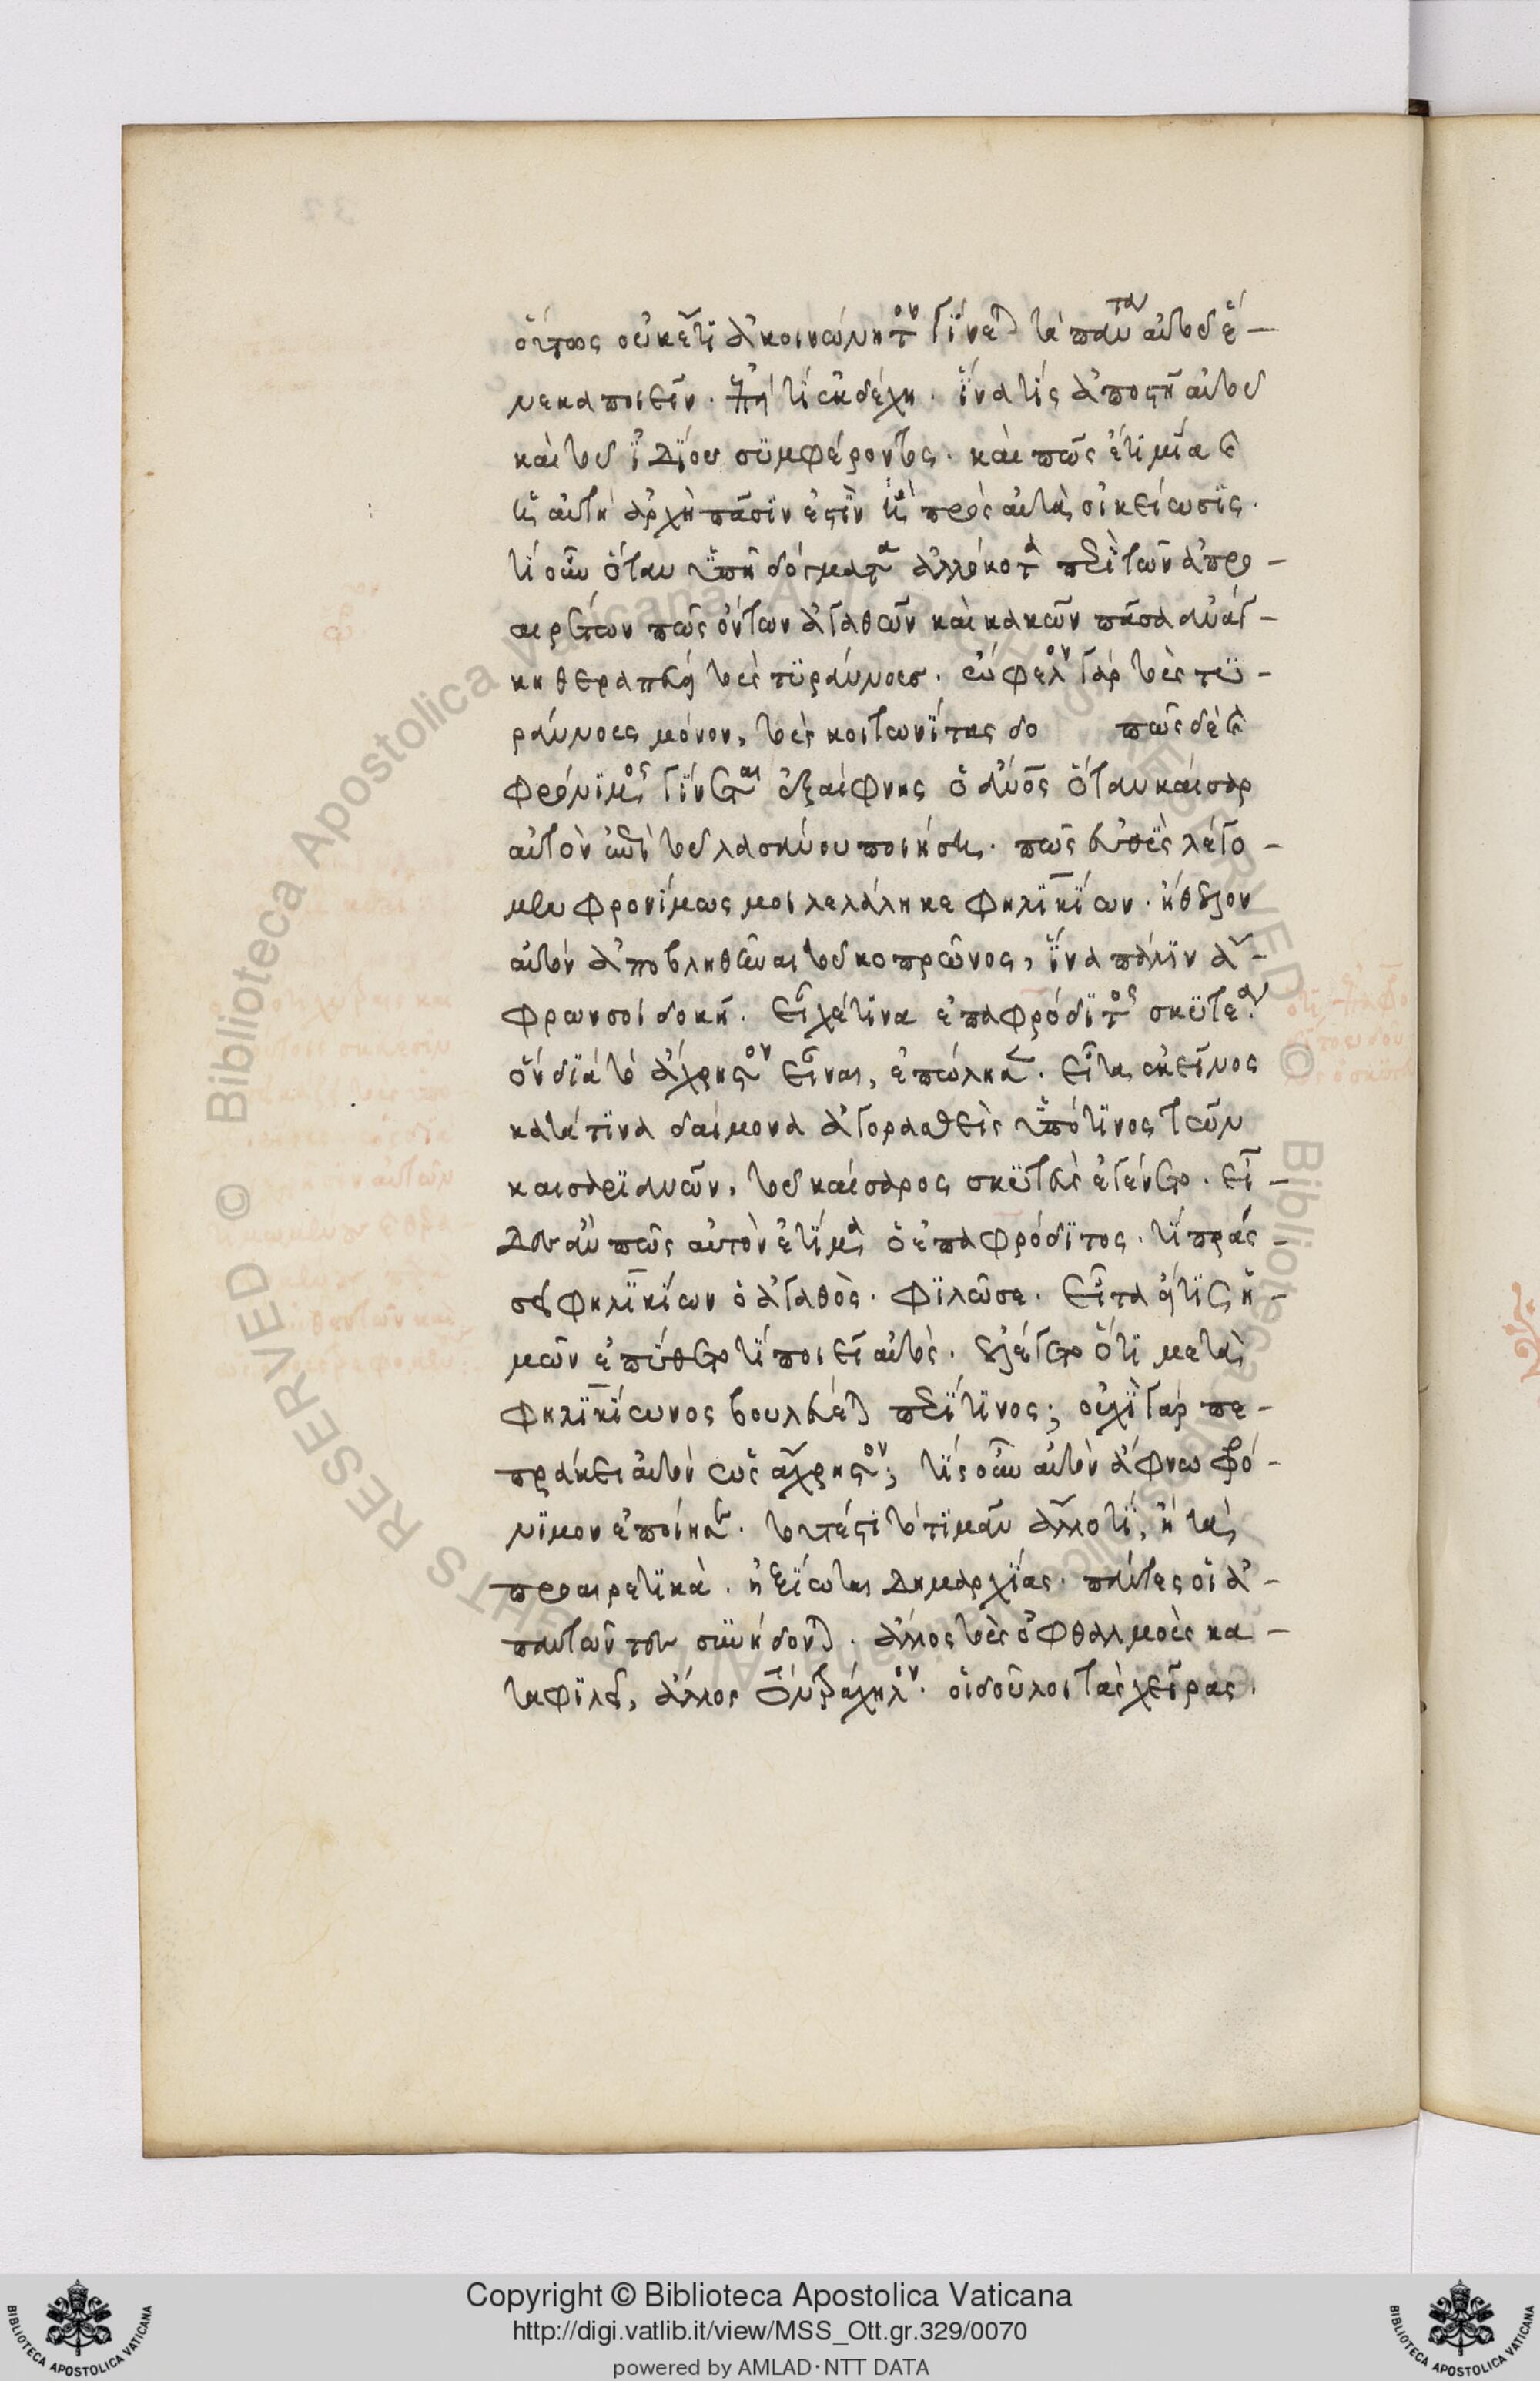 οὕτως οὐκέτι ἀκοινώνητον γίνεται τὸ πάντα αὐτοῦ ἕ-
νεκα ποιεῖν. ἐπεὶ τί ἐκδέχῃ. ἵνα τίς ἀποστῇ αὐτοῦ
καὶ τοῦ ἰδίου συμφέροντος. καὶ πῶς ἔτι μία καὶ
ἡ αὐτὴ ἀρχὴ πᾶσιν ἐστὶν ἡ πρὸς αὐτὰ οἰκείωσις.
τί οὖν ὅταν ὑπῇ δόγματα ἀλλόκοτα περὶ τῶν ἀπρο-
αιρέτων πῶς ὄντων ἀγαθῶν καὶ κακῶν πᾶσα ἀνάγ-
κη θεραπεύειν τοὺς τυράννους. ὤφελον γὰρ τοὺς τυ-
ράννους μόνον, τοὺς κοιτωνίτας δο πῶς δὲ καὶ
φρόνιμος γίνεται ἐξαίφνης ὁ ἄνος ὅταν καίσαρ
αὐτὸν ἐπὶ τοῦ λασάνου ποιήσῃ. πῶς εὐθὺς λέγο-
μεν φρονίμως μοι λελάληκε φηλικίων. ἤθελον
αὐτὸν ἀποβληθῆναι τοῦ κοπρῶνος, ἵνα πάλιν ἄ-
φρων σοι δοκῇ. εἶχέ τινα ἐπαφρόδιτος σκυτέα.
ὃν διὰ τὸ ἄχρηστον εἶναι, ἐπώλησεν. εἶτα ἐκεῖνος
κατά τινα δαίμονα ἀγορασθεὶς ὑπό τινος τῶν
καισαριανῶν, τοῦ καίσαρος σκυτεὺς ἐγένετο. εἶ-
δες ἂν πῶς αὐτὸν ἐτίμα ὁ ἐπαφρόδιτος. τί πράσ-
σει φηλικίων ὁ ἀγαθὸς. φιλῶ σε. εἶτα εἴ τις ἡ-
μῶν ἐπύθετο τί ποιεῖ αὐτὸς. ἐλέγετο ὅτι μετὰ
φηλικίωνος βουλεύεται περί τινος; οὐχὶ γὰρ πε-
πράκει αὐτὸν ὡς ἄχρηστον; τίς οὖν αὐτὸν ἄφνω φρό-
νιμον ἐποίησεν. τοῦτ' ἔστι τὸ τιμᾶν ἄλλο τί, ἢ τὰ
προαιρετικὰ. ἠξίωται δημαρχίας. πάντες οἱ ἀ-
παντῶντες συνήδονται. ἄλλος τοὺς ὀφθαλμοὺς κα-
ταφιλεῖ, ἄλλος τὸν τράχηλον. οἱ δοῦλοι τὰς χεῖρας.
Copyright © Biblioteca Apostolica Vaticana
http://digi.vatlib.it/view/MSS_Ott.gr.329/0070
powered by AMLAD·NTT DATA